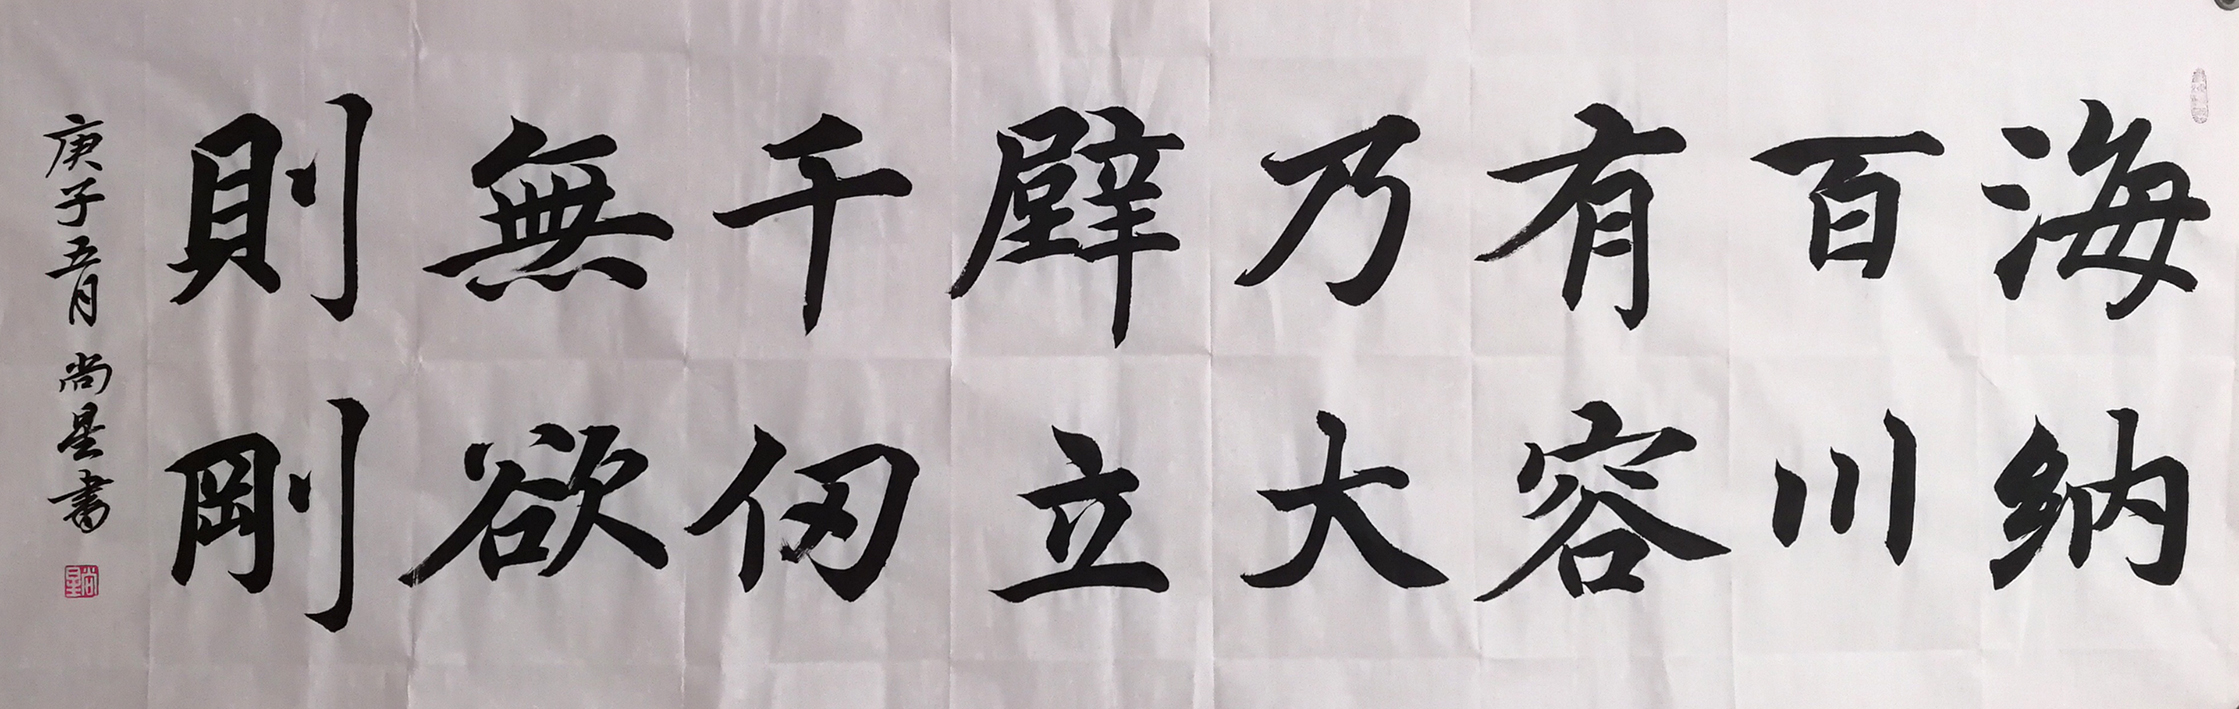 海納
百川
有容
乃大
壁立
千仞
無欲
則剛
庚子五月 尚星書
尚星